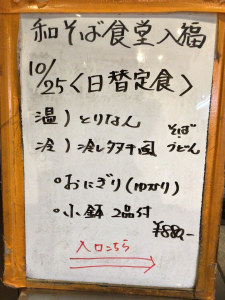 和そば食堂入福
10/25<日替定食>
温)とりなん
冷)冷しタヌキ風 そば うどん
○おにぎり(ゆかり)
○小鉢2品付
¥880,-
入口こちら